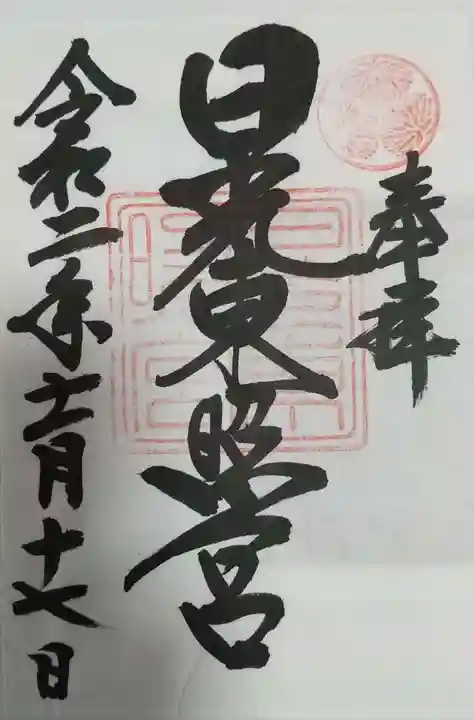 奉拝
日光東照宮
令和二年十一月十七日